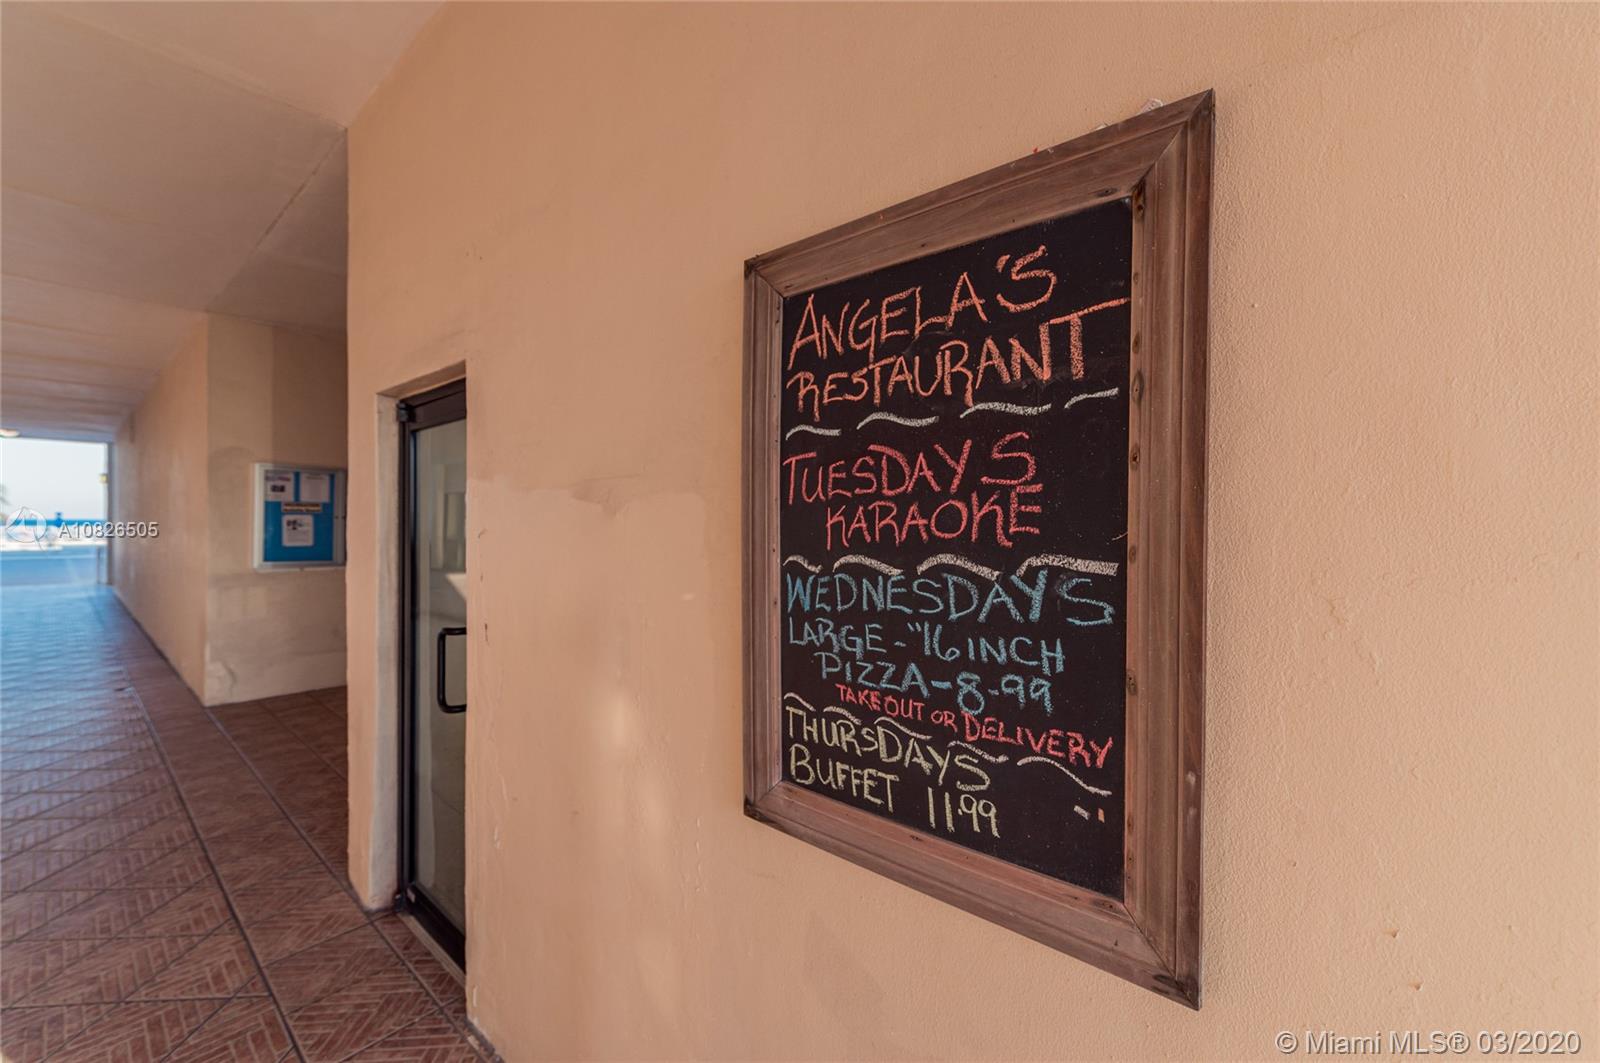 ANGELA'S
RESTAURANT
TUESDAYS
KARAOKE
WEDNESDAYS
LARGE-"16 INCH
PIZZA-8-99
TAKE OUT OR DELIVERY
THURSDAYS
BUFFET 11.99
A10826505
© Miami MLS® 03/2020